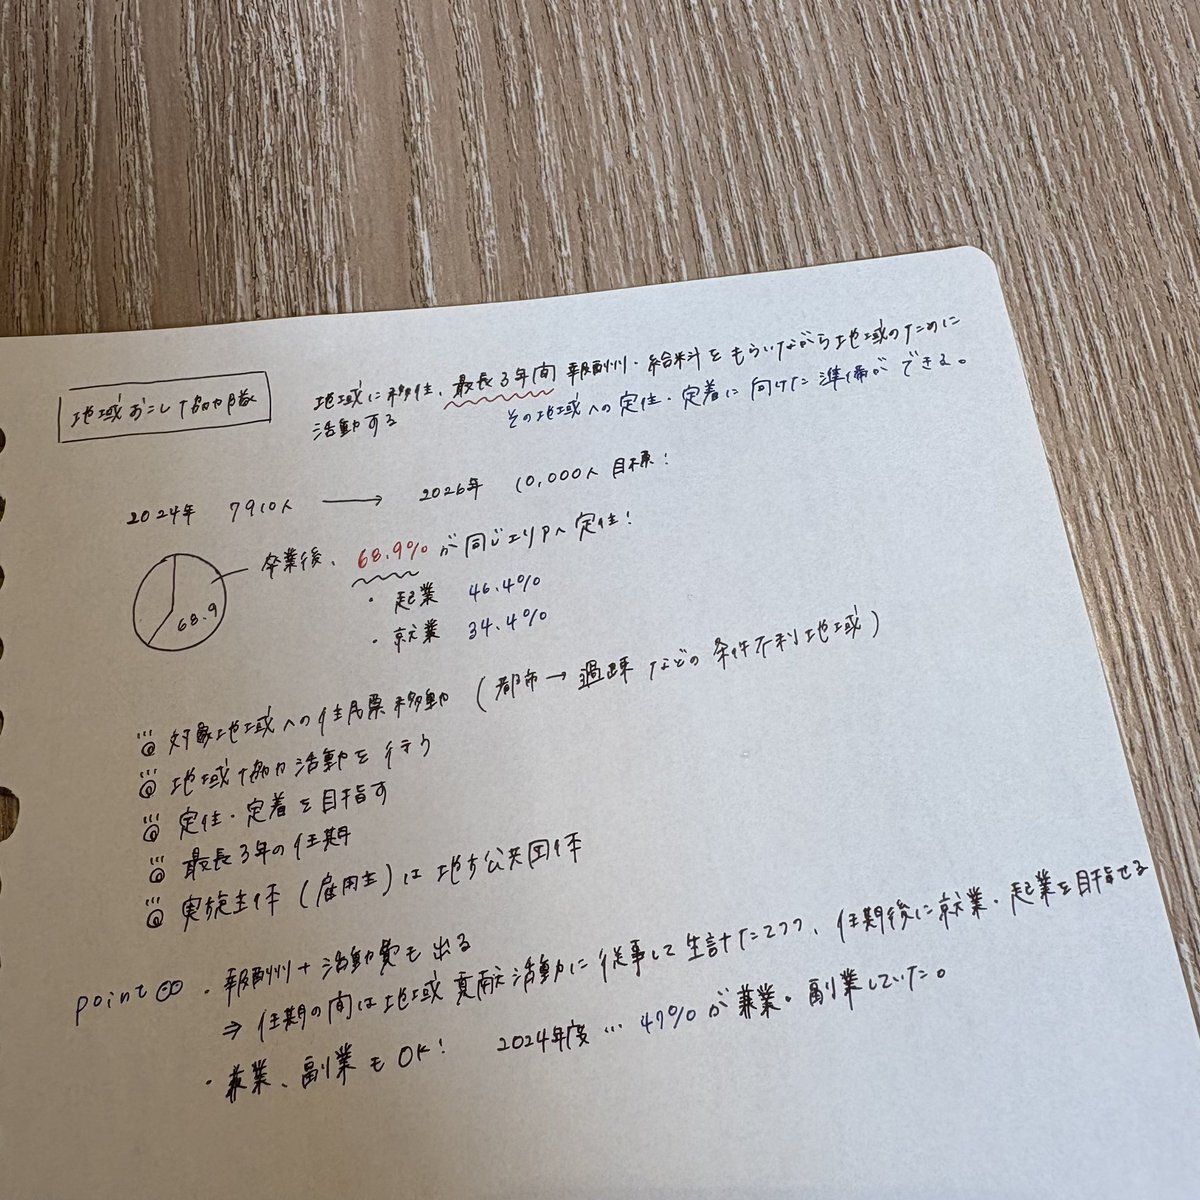 地域おこし協力隊
地域に移住、最長3年間 報酬・給料をもらいながら地域のために
活動する
その地域への定住・定着に向けた準備ができる。
2024年 7910人 → 2026年 10,000人 目標!
68.9
卒業後、68.9%が同じエリアへ定住!
・起業 46.4%
・就業 34.4%
対象地域への住民票移動 (都市→過疎などの条件不利地域)
地域協力活動を行う
定住・定着を目指す
最長3年の任期
実施主体(雇用主)は地方公共団体
point
・報酬+活動費も出る
⇒ 任期の間は地域貢献活動に従事して生計たてつつ、任期後に就業・起業を目指せる
・兼業、副業もOK! 2024年度…47%が兼業・副業していた。